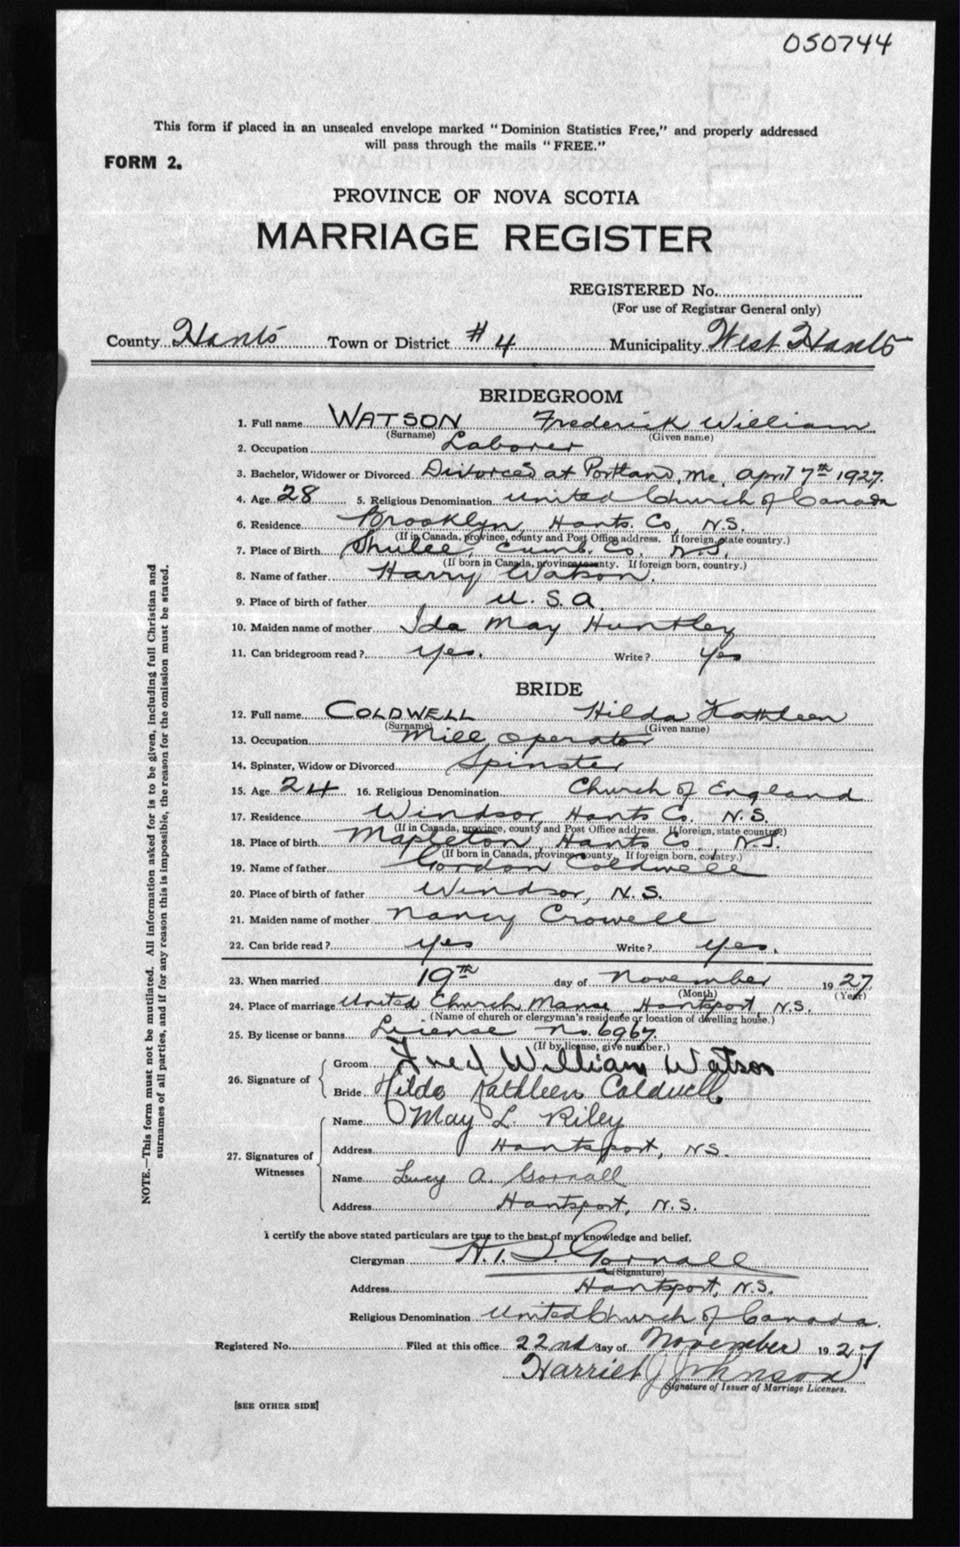 050744
This form if placed in an unsealed envelope marked "Dominion Statistics Free," and properly addressed
will pass through the mails "FREE."
FORM 2.
PROVINCE OF NOVA SCOTIA
MARRIAGE REGISTER
REGISTERED No.
(For use of Registrar General only)
County Hants Town or District #4 Municipality West Hants
BRIDEGROOM
1. Full name WATSON Frederick William
(Surname) (Given name)
2. Occupation Laborer
3. Bachelor, Widower or Divorced Divorced at Portland, Me, April 7th 1927.
4. Age 28 5. Religious Denomination United Church of Canada
6. Residence Brooklyn, Hants. Co, N.S.
(If in Canada, province, county and Post Office address. If foreign, state country.)
7. Place of Birth Shulee, Cumb. Co. N.S.
(If born in Canada, province, county. If foreign born, country.)
8. Name of father Harry Watson.
9. Place of birth of father U.S.A.
10. Maiden name of mother Ida May Huntley
11. Can bridegroom read? Yes. Write? Yes
BRIDE
12. Full name COLDWELL Hilda Kathleen
(Surname) (Given name)
13. Occupation Mill operator
14. Spinster, Widow or Divorced Spinster
15. Age 24 16. Religious Denomination Church of England
17. Residence Windsor, Hants Co. N.S.
(If in Canada, province, county and Post Office address. If foreign, state country)
18. Place of birth Mapleton, Hants Co, N.S.
(If born in Canada, province, county. If foreign born, country.)
19. Name of father Gordon Coldwell
20. Place of birth of father Windsor, N.S.
21. Maiden name of mother Nancy Crowell
22. Can bride read? yes Write? yes.
23. When married 19th day of November 1927
(Month) (Year)
24. Place of marriage United Church Manse Hantsport, N.S.
(Name of church or clergyman's residence or location of dwelling house.)
25. By license or banns License No. 6967.
(If by license, give number.)
26. Signature of
Groom Fred William Watson
Bride Hilda Kathleen Coldwell
27. Signatures of Witnesses
Name May L Riley
Address Hantsport, NS.
Name Lucy A. Gornall
Address Hantsport, N.S.
I certify the above stated particulars are true to the best of my knowledge and belief.
Clergyman Gornall
(Signature)
Address Hantsport, N.S.
Religious Denomination United Church of Canada.
Registered No. Filed at this office 22nd day of November 1927
Harriet J Johnson
Signature of Issuer of Marriage Licenses.
[SEE OTHER SIDE]
NOTE.—This form must not be mutilated. All information asked for is to be given, including full Christian and
surnames of all parties, and if for any reason this is impossible, the reason for the omission must be stated.